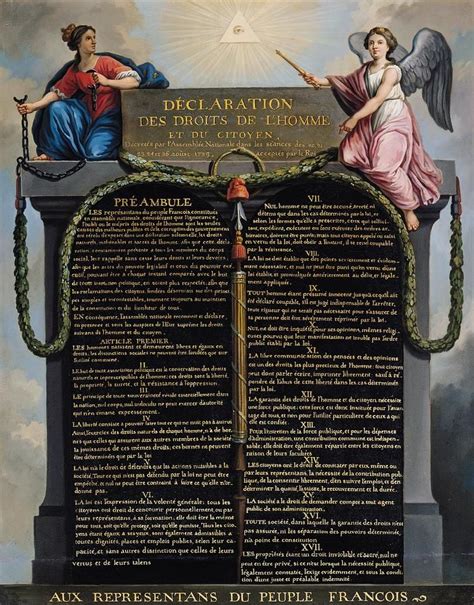 DÉCLARATION
DES DROITS DE L'HOMME
ET DU CITOYEN,
Décretés par l'Assemblée Nationale dans les séances des
acceptés par le Roi
PRÉAMBULE
LES représentans du peuple François, constitués
en assemblée nationale, considérant que l'ignorance,
l'oubli ou le mépris des droits de l'homme sont les seules
causes des malheurs publics et de la corruption des gouvernemens
ont résolu d'exposer dans une déclaration solemnelle, les droits
naturels, inaliénables et sacrés de l'homme; afin que cette décla-
ration, constamment présente à tous les membres du corps
social, leur rappelle sans cesse leurs droits et leurs devoirs;
afin que les actes du pouvoir législatif et ceux du pouvoir exé-
cutif, pouvant être à chaque instant comparés avec le but
de toute institution politique, en soient plus respectés; afin que
les réclamations des citoyens, fondées désormais sur des prin-
cipes simples et incontestables, tournent toujours au maintien
de la constitution et du bonheur de tous.
EN conséquence, l'assemblée nationale reconnoit et déclare,
en présence et sous les auspices de l'Etre suprême les droits
suivans de l'homme et du citoyen.
ARTICLE PREMIER.
LES hommes naissent et demeurent libres et égaux en
droits. les distinctions sociales ne peuvent être fondées que sur
l'utilité commune.
II.
LE but de toute association politique est la conservation des droits
naturels et imprescriptibles de l'homme; ces droits sont la liberté,
la propriété, la sureté, et la résistance à l'oppression.
III.
LE principe de toute souveraineté réside essentiellement dans
la nation, nul corps, nul individu ne peut exercer d'autorité
qui n'en émane expressement.
IV.
LA liberté consiste à pouvoir faire tout ce qui ne nuit pas à autrui
Ainsi, l'exercice des droits naturels de chaque homme, n'a de bor-
nes que celles qui assurent aux autres membres de la société
la jouissance de ces mêmes droits; ces bornes ne peuvent
être déterminées que par la loi.
V.
LA loi n'a le droit de défendre que les actions nuisibles à la
société. Tout ce qui n'est pas défendu par la loi ne peut être
empêché, et nul ne peut être contraint à faire ce qu'elle n'or-
donne pas.
VI.
LA loi est l'expression de la volonté générale; tous les cito-
yens ont droit de concourir personnellement, ou par
leurs représentans, à sa formation; elle doit être la même
pour tous, soit qu'elle protege, soit qu'elle punisse. Tous les
citoyens étant égaux à ses yeux, sont également admissibles à
toutes dignités, places et emplois publics, selon leur capa-
cité, et sans autres distinction que celles de leurs
vertus et de leurs talens
VII.
NUL homme ne peut être accusé, arrêté, ni
détenu que dans les cas déterminés par la loi, et
selon les formes qu'elle a prescrites, ceux qui sollicitent,
expédient, exécutent ou font exécuter des ordres ar-
bitraires, doivent être punis; mais tout citoyen appelé ou
saisi en vertu de la loi, doit obéir à l'instant, il se rend coupable
par la résistance.
VIII.
LA loi ne doit établir que des peines strictement et évidem-
ment nécessaires, et nul ne peut être puni qu'en vertu d'une
loi établie et promulguée antérieurement au délit, et légale-
ment appliquée.
IX.
TOUT homme étant présumé innocent jusqu'à ce qu'il ait
été déclaré coupable, s'il est jugé indispensable de l'arrêter,
toute rigueur qui ne seroit pas nécessaire pour s'assurer de
sa personne doit être sévèrement réprimée par la loi.
X.
NUL ne doit être inquiété pour ses opinions, mêmes reli-
gieuses pourvu que leur manifestation ne trouble pas l'ordre
public établi par la loi.
XI.
LA libre communication des pensées et des opinions
est un des droits les plus précieux de l'homme; tout citoyen
peut donc parler, écrire, imprimer librement, sauf à ré-
pondre de l'abus de cette liberté dans les cas déterminés
par la loi.
XII.
LA garantie des droits de l'homme et du citoyen nécessite
une force publique; cette force est donc instituée pour l'avan-
tage de tous, et non pour l'utilité particuliere de ceux à qui
elle est confiée.
XIII.
Pour l'entretien de la force publique, et pour les dépenses
d'administration, une contribution commune est indispen-
sable; elle doit être également répartie entre les citoyens en
raison de leurs facultés
XIV.
LES citoyens ont le droit de constater par eux même ou
par leurs représentans, la nécessité de la contribution pu-
blique, de la consentir librement, d'en suivre l'emploi, et d'en déter-
miner la quotité, l'assiette, le recouvrement et la durée.
XV.
LA société a le droit de demander compte à tout agent
public de son administration.
XVI.
TOUTE société, dans laquelle la garantie des droits n'est
pas assurée, ni la séparation des pouvoirs déterminée, n'a
point de constitution.
XVII.
LES propriétés étant un droit inviolable et sacré, nul ne
peut en être privé, si ce n'est lorsque la nécessité publique, léga-
lement constatée, l'exige évidemment, et sous la condition
d'une juste et préalable indemnité.
AUX REPRESENTANS DU PEUPLE FRANCOIS